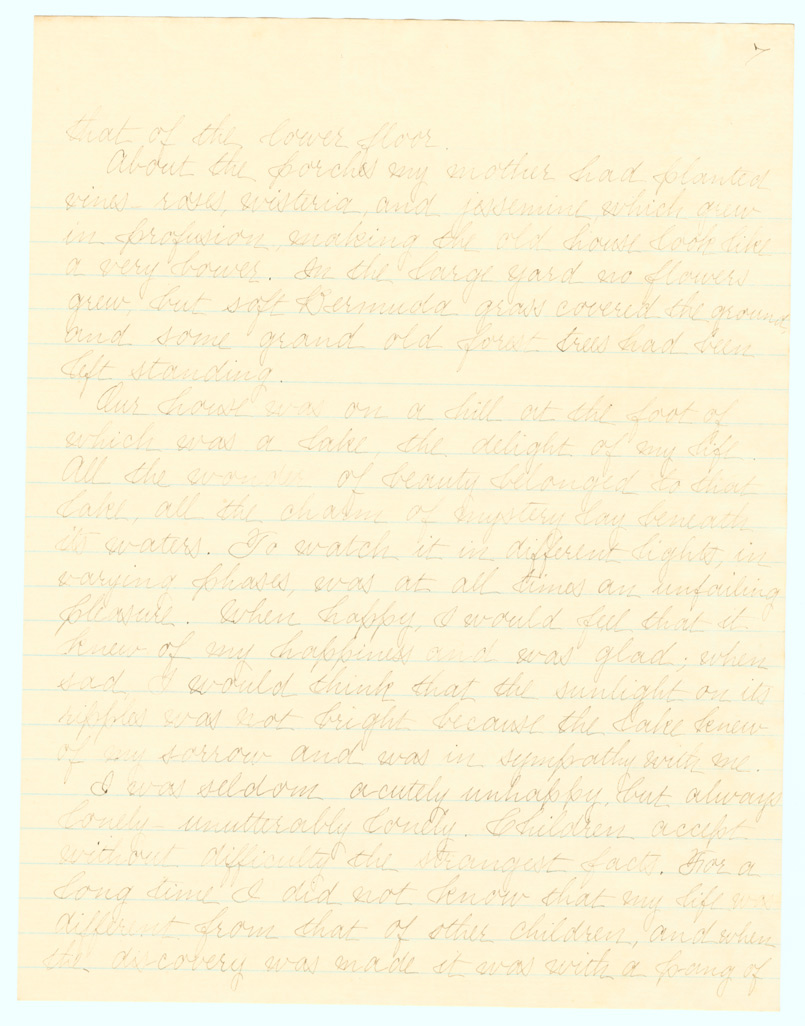 7
that of the lower floor.
About the porches my mother had planted
vines roses, wisteria, and jessemine, which grew
in profusion, making the old house look like
a very bower. In the large yard no flowers
grew, but soft Bermuda grass covered the ground
and some grand old forest trees had been
left standing.
Our house was on a hill at the foot of
which was a lake, the delight of my life.
All the wonder of beauty belonged to that
lake, all the charm of mystery lay beneath
its waters. To watch it in different lights, in
varying phases, was at all times an unfailing
pleasure. When happy, I would feel that it
knew of my happiness and was glad; when
sad, I would think that the sunlight on its
ripples was not bright because the lake knew
of my sorrow and was in sympathy with me.
I was seldom acutely unhappy, but always
lonely - unutterably lonely. Children accept
without difficulty the strangest facts. For a
long time I did not know that my life was
different from that of other children, and when
the discovery was made it was with a pang of